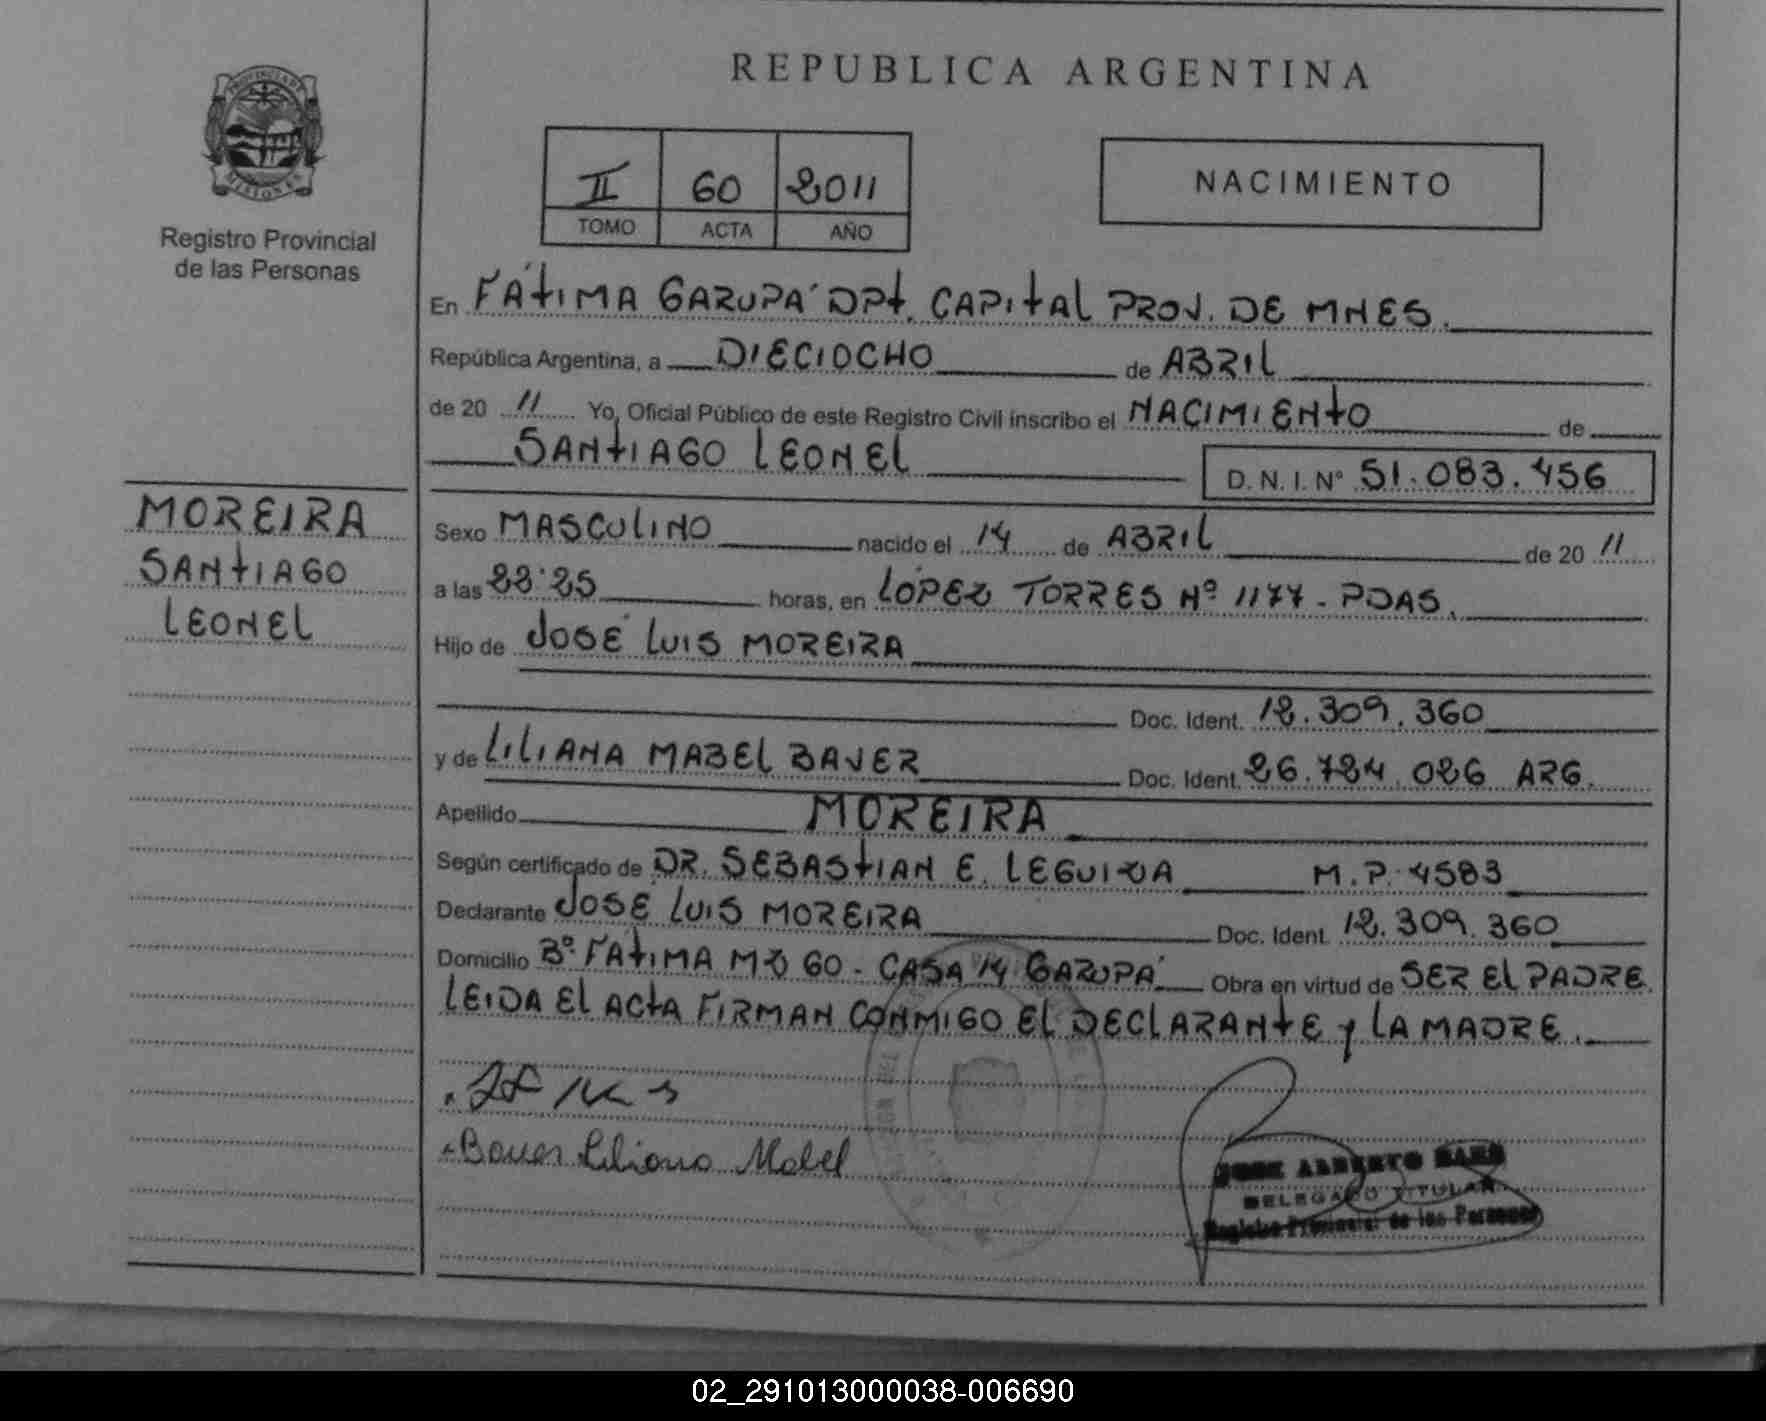 REPUBLICA ARGENTINA
PROVINCIA DE
MISIONES
Registro Provincial
de las Personas
II 60 2011
TOMO ACTA AÑO
NACIMIENTO
En FÁTIMA GARUPÁ DPT. CAPITAL PROV. DE MNES.
República Argentina, a DIECIOCHO de ABRIL
de 20 11 Yo, Oficial Público de este Registro Civil inscribo el NACIMIENTO de
SANTIAGO LEONEL D. N. I. N° 51.083.456
MOREIRA
SANTIAGO
LEONEL
Sexo MASCULINO nacido el 14 de ABRIL de 20 11
a las 22:25 horas, en LÓPEZ TORRES Nº 1177 - PDAS.
Hijo de JOSÉ LUIS MOREIRA
Doc. Ident. 12.309.360
y de LILIANA MABEL BAUER Doc. Ident. 26.724.026 ARG.
Apellido MOREIRA
Según certificado de DR. SEBASTIAN E. LEGUIZA M.P. 4583
Declarante JOSÉ LUIS MOREIRA Doc. Ident. 12.309.360
Domicilio Bº FÁTIMA MZ 60 - CASA 14 GARUPÁ Obra en virtud de SER EL PADRE.
LEIDA EL ACTA FIRMAN CONMIGO EL DECLARANTE Y LA MADRE.
Bauer Liliana Mabel
JOSE ALBERTO
DELEGADO TITULAR
Registro Provincial de las Personas
02_291013000038-006690